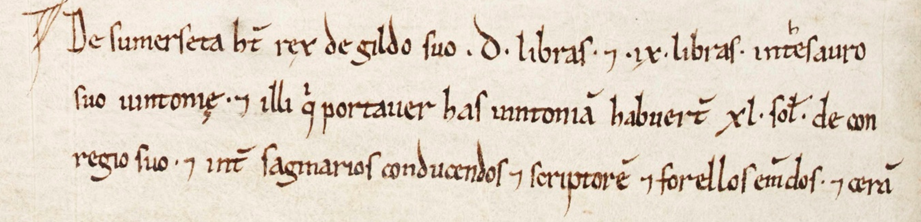 De sumerseta ht̄ rex de gildo suo . D . libras · ⁊ · ix · libras · in thesauro
suo uuintonię · ⁊ illi q̇ portauer has uuintoniā habuert̄ xl · sol̄ · de con
regio suo · ⁊ int̄ sagmarios conducendos ⁊ scriptorē ⁊ forellos em̄dos · ⁊ cerā